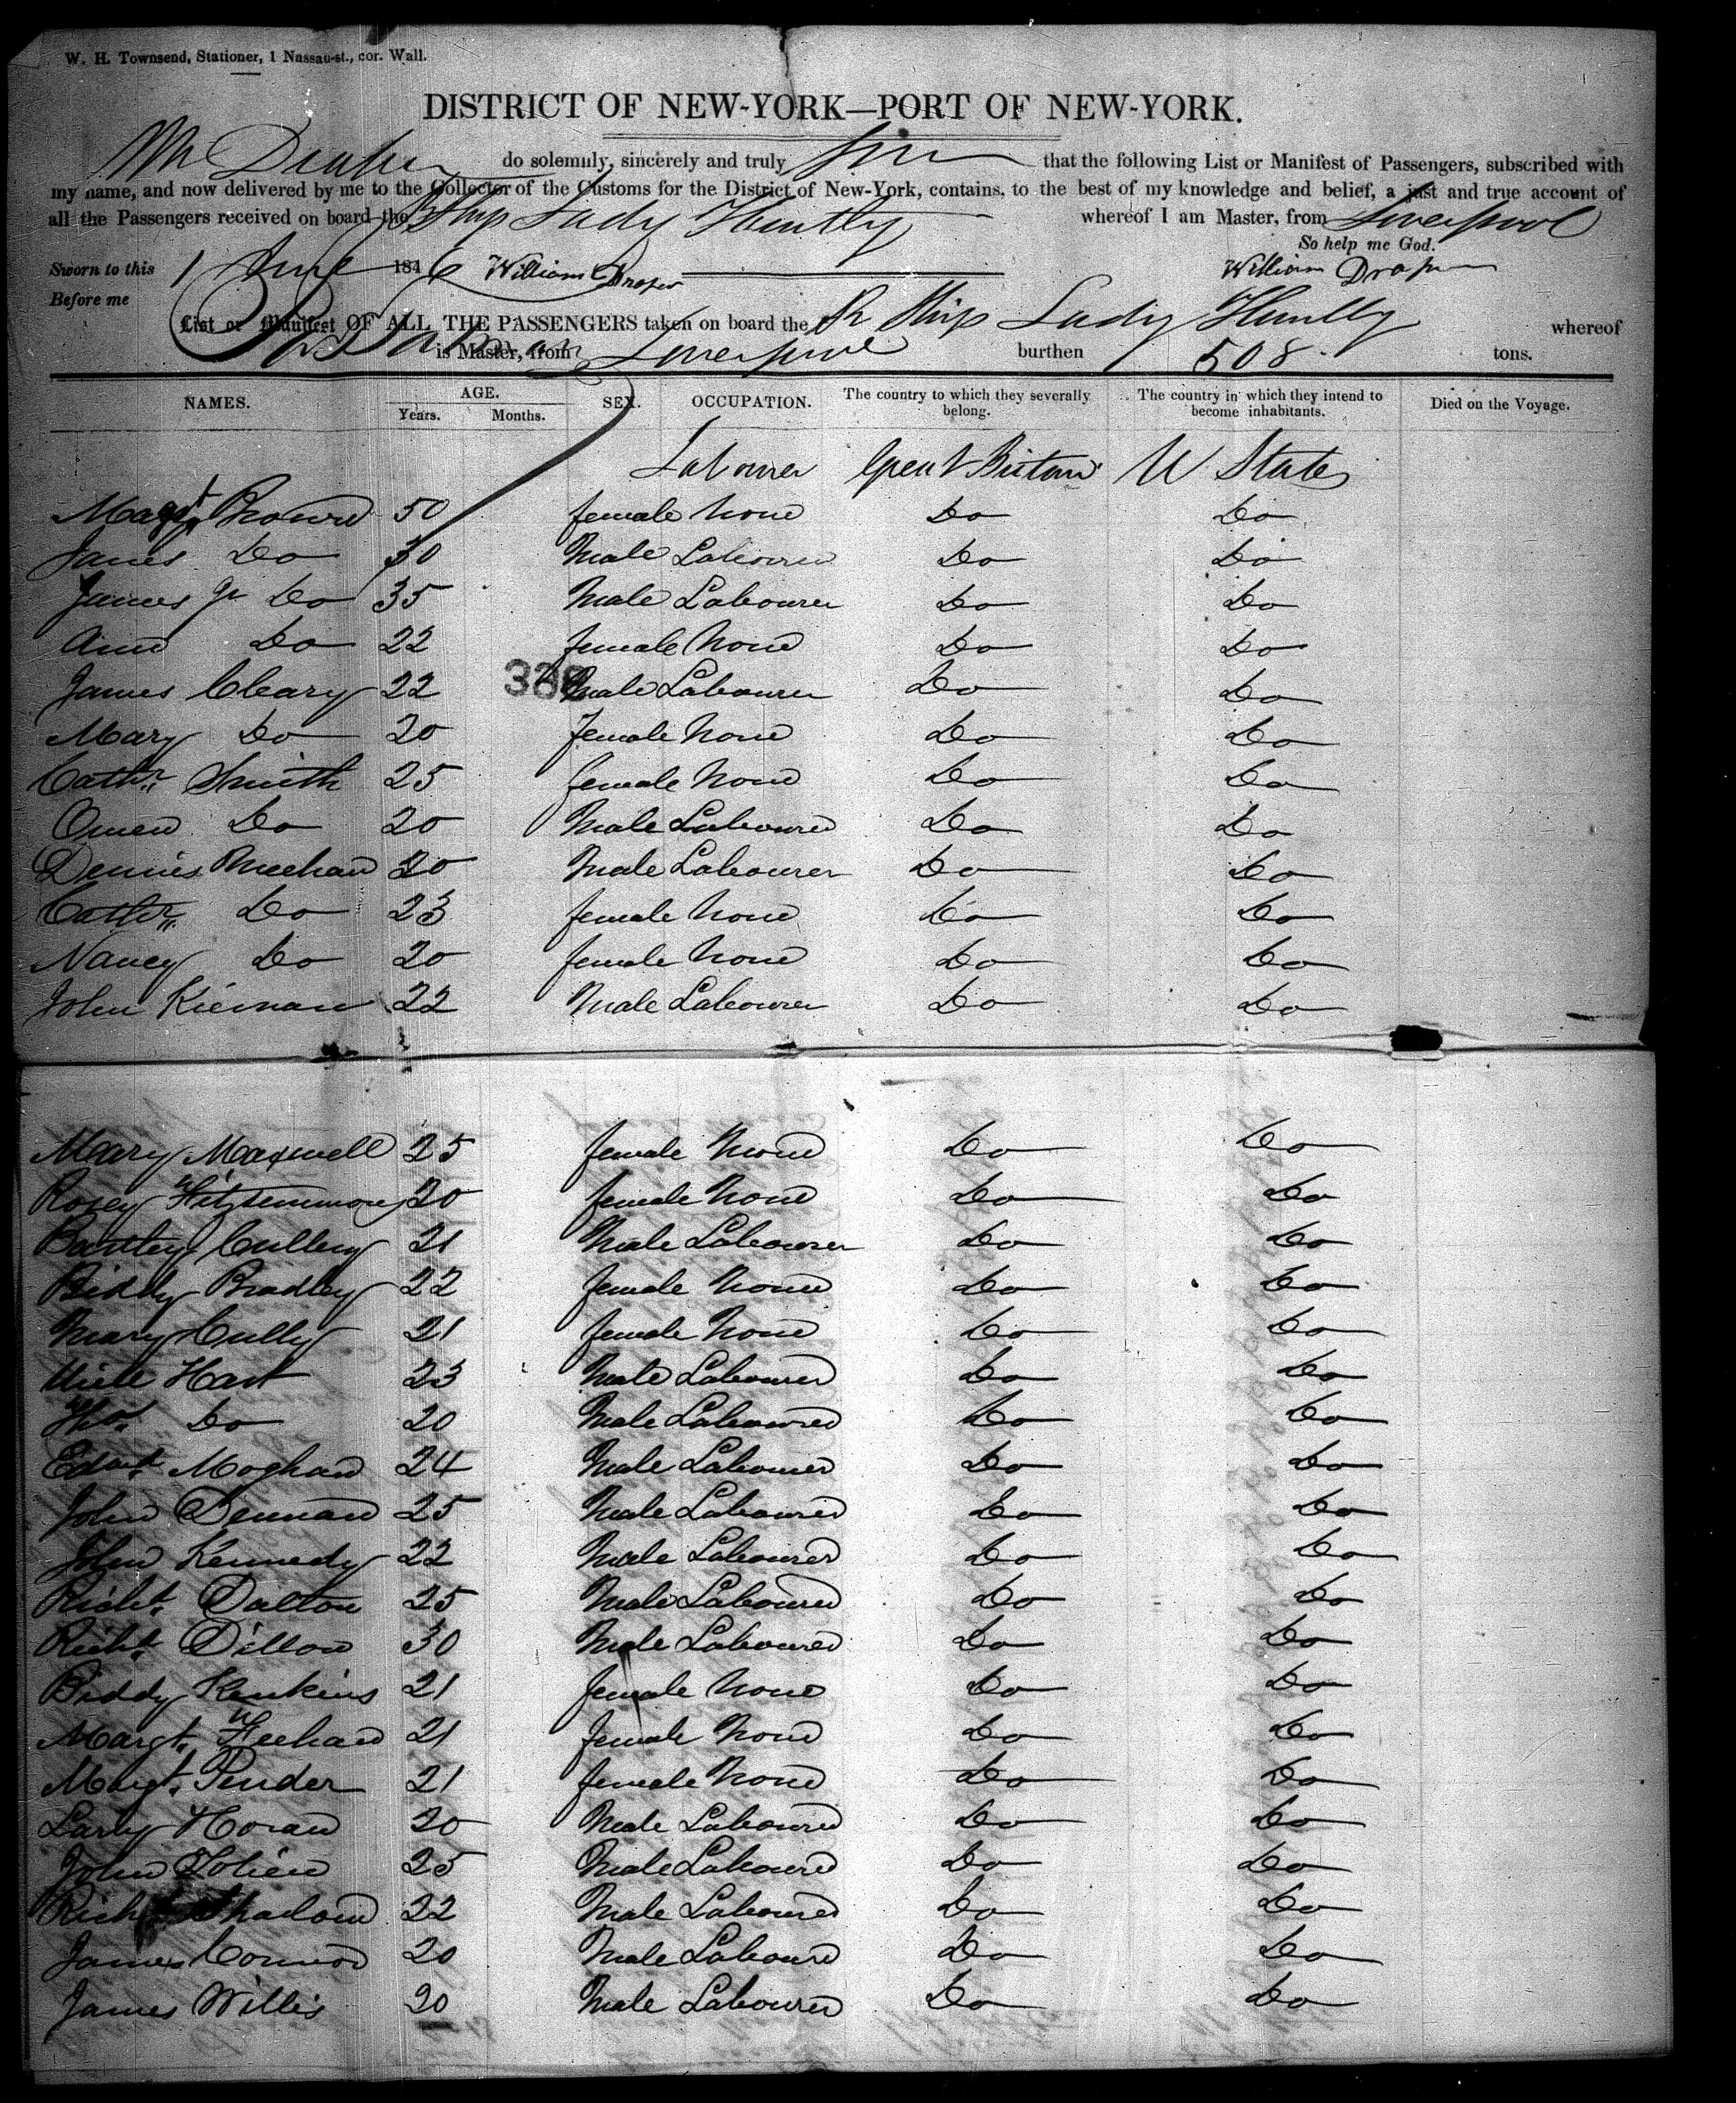 W. H. Townsend, Stationer, 1 Nassau-st., cor. Wall.
DISTRICT OF NEW-YORK—PORT OF NEW-YORK.
Wm Draper do solemnly, sincerely and truly that the following List or Manifest of Passengers, subscribed with
my name, and now delivered by me to the Collector of the Customs for the District of New-York, contains, to the best of my knowledge and belief, a just and true account of
all the Passengers received on board the Ship Lady Huntly whereof I am Master, from Liverpool
So help me God.
Sworn to this 1 June 1846 William Draper William Draper
Before me
List or Manifest OF ALL THE PASSENGERS taken on board the Br Ship Lady Huntly whereof
is Master, from Liverpool burthen 508 tons.
NAMES. AGE. Years. Months. SEX. OCCUPATION. The country to which they severally belong. The country in which they intend to become inhabitants. Died on the Voyage.
Labourer Great Britain U States
Magt 50 female None Do Do
James Do 30 Male Labourer Do Do
James Jr Do 35 Male Labourer Do Do
Ann Do 22 female None Do Do
James Cleary 22 Male Labourer Do Do
Mary Do 20 female None Do Do
Cathn Smith 25 female None Do Do
Owen Do 20 Male Labourer Do Do
Dennis Meehan 20 Male Labourer Do Do
Cathn Do 23 female None Do Do
Nancy Do 20 female None Do Do
John Kiernan 22 Male Labourer Do Do
Mary Maxwell 25 female None Do Do
Rosey Fitzsimmons 20 female None Do Do
Bartley Cullen 21 Male Labourer Do Do
Biddy Bradley 22 female None Do Do
Mary Cully 21 female None Do Do
Hart 23 Male Labourer Do Do
Thos Do 20 Male Labourer Do Do
Edwd Moghan 24 Male Labourer Do Do
John Dennan 25 Male Labourer Do Do
John Kennedy 22 Male Labourer Do Do
Richt. Dalton 25 Male Labourer Do Do
Richt. Dillon 30 Male Labourer Do Do
Biddy Kenkins 21 female None Do Do
Margt. Feehan 21 female None Do Do
Margt. Pender 21 female None Do Do
Larry Horan 20 Male Labourer Do Do
John 25 Male Labourer Do Do
22 Male Labourer Do Do
James Connor 20 Male Labourer Do Do
James Willis 20 Male Labourer Do Do